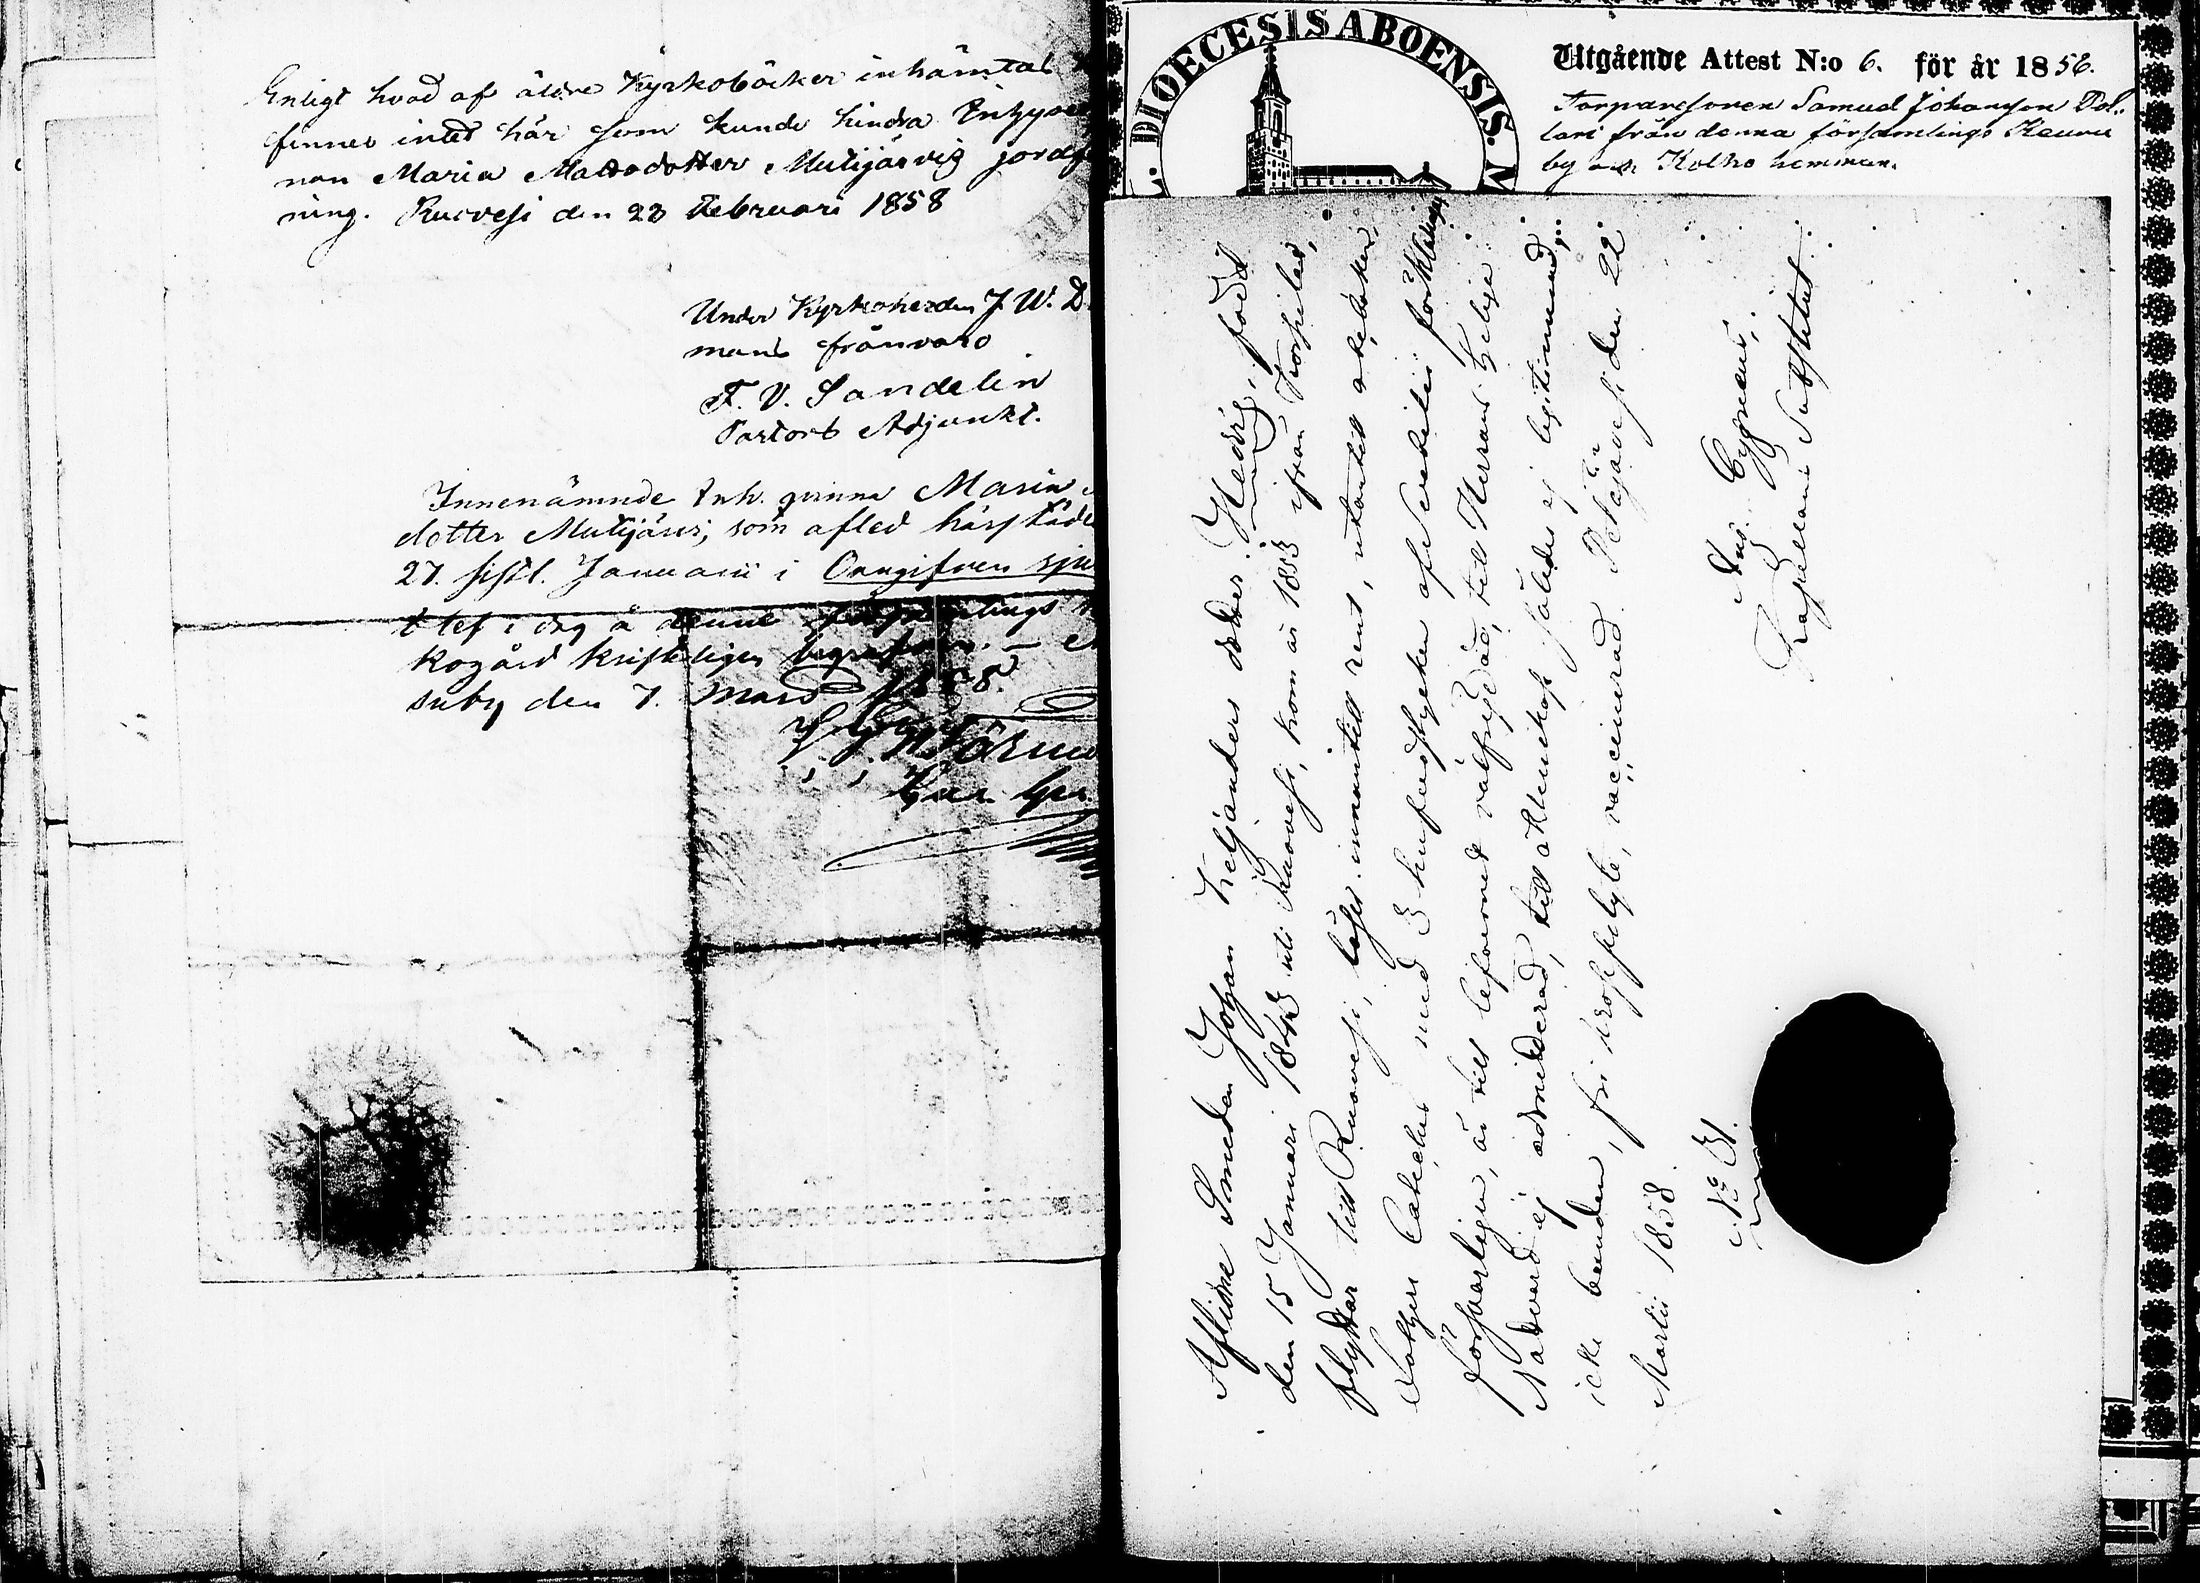 Enligt hvad af äldre Kyrkoböcker inhämtat
finnes intet här som kunde hindra Inhyses
nan Maria Mattsdotter Mutijärvis jordaf
ning. Ruovesi den 28 Februari 1858
Under Kyrkoherden J. W. D
mans frånvaro
F. V. Sandelin
Pastors Adjunkt.
Innenämnde Inh. qvinna Maria
dotter Mutijärvi, som afled härstäde
27. sistl. Januarii i Oangifven sju
blef i dag å denne församlings
kogård kristeligen begrafven. –
suby den 7. Mars 1858.
L. DIOECESIS ABOENSIS. M
Utgående Attest N:o 6. för år 1856.
Torparesonen Samuel Johansson Pol-
lari från denna församlings Keuru
by och Kolho hemman.
Aflidne Smeden Johan Heljanders dotter Hedvig, född
den 15 Januari 1843 uti Ruovesi, kom år 1853 ifrån Korpilax,
flyttar till Ruovesi, läser innantill rent, utantill
Cateches med 3 hufvudstycken
försvarligen, är till lefvernet välfrejdad, till Herrans Helga
Nattvard ej admitterad, till äktenskap således ej legitimerad,
icke bunden, fri, vaccinerad. Petäjävesi den 22
Martii 1858.
Aug. Cygnæus,
Kapellans Substitut
No 31.